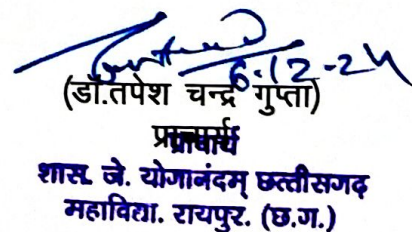 6-12-24
(डॉ.तपेश चन्द्र गुप्ता)
प्राचार्य
शास. जे. योगानंदम् छत्तीसगढ़
महाविद्या. रायपुर. (छ.ग.)